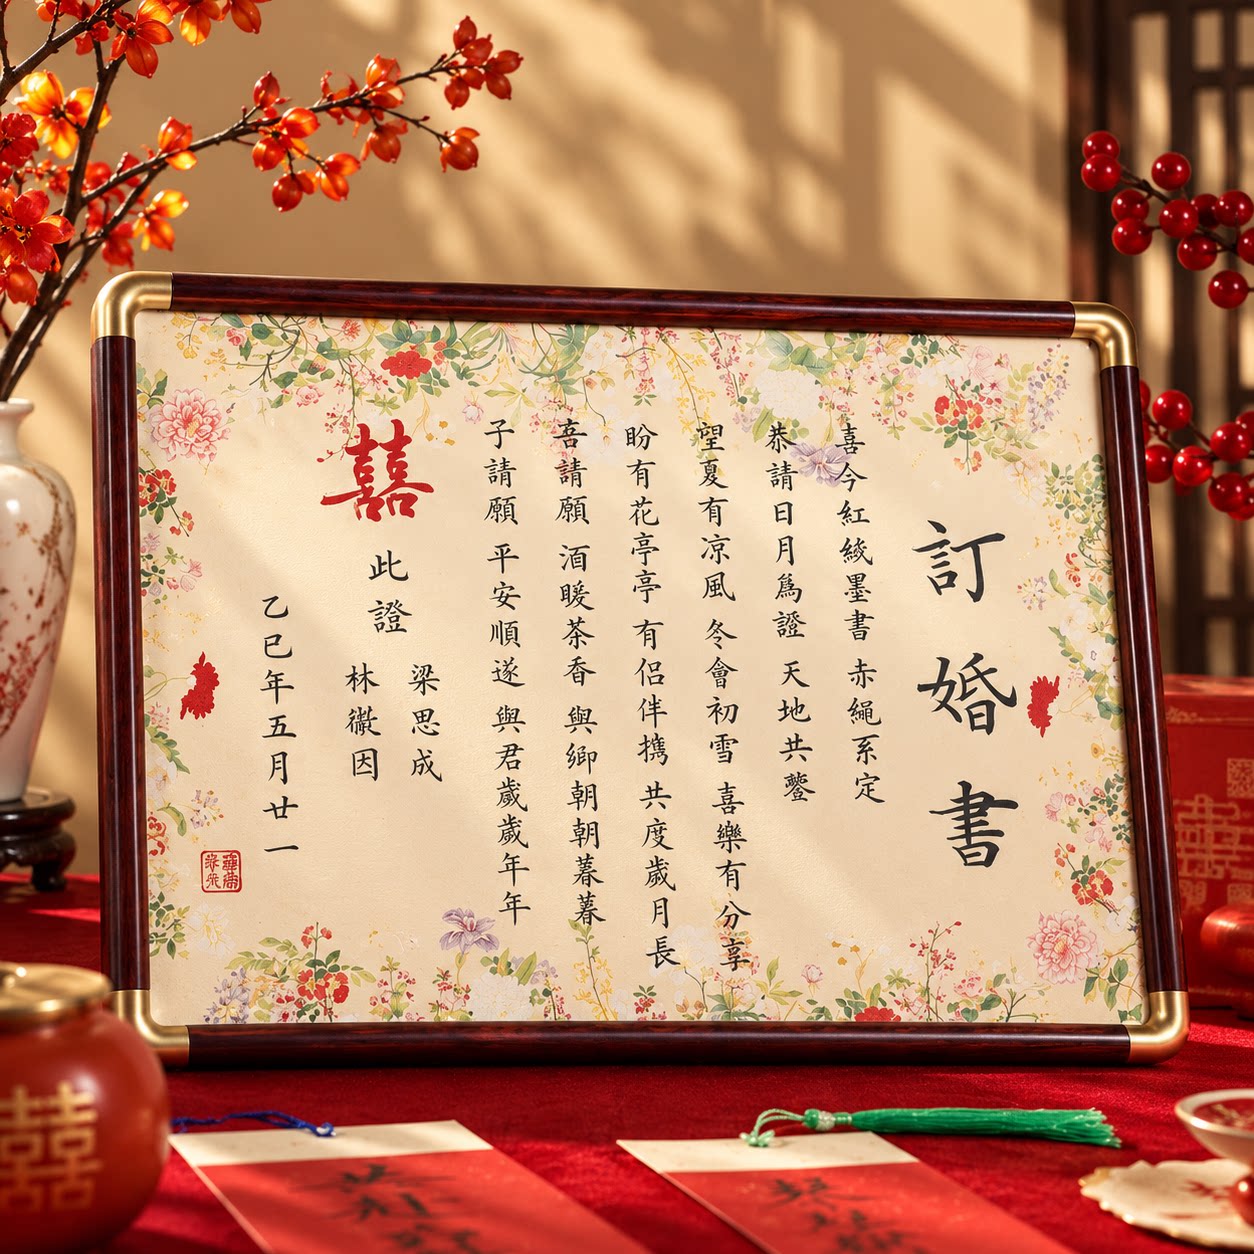 訂婚書
喜今紅綾墨書 赤繩系定
恭請日月為證 天地共鑒
望夏有凉風 冬會初雪 喜樂有分享
盼有花亭亭 有侶伴携 共度歲月長
吾請願 酒暖茶香 與卿朝朝暮暮
子請願 平安順遂 與君歲歲年年
囍
此證
梁思成
林徽因
乙巳年五月廿一
囍